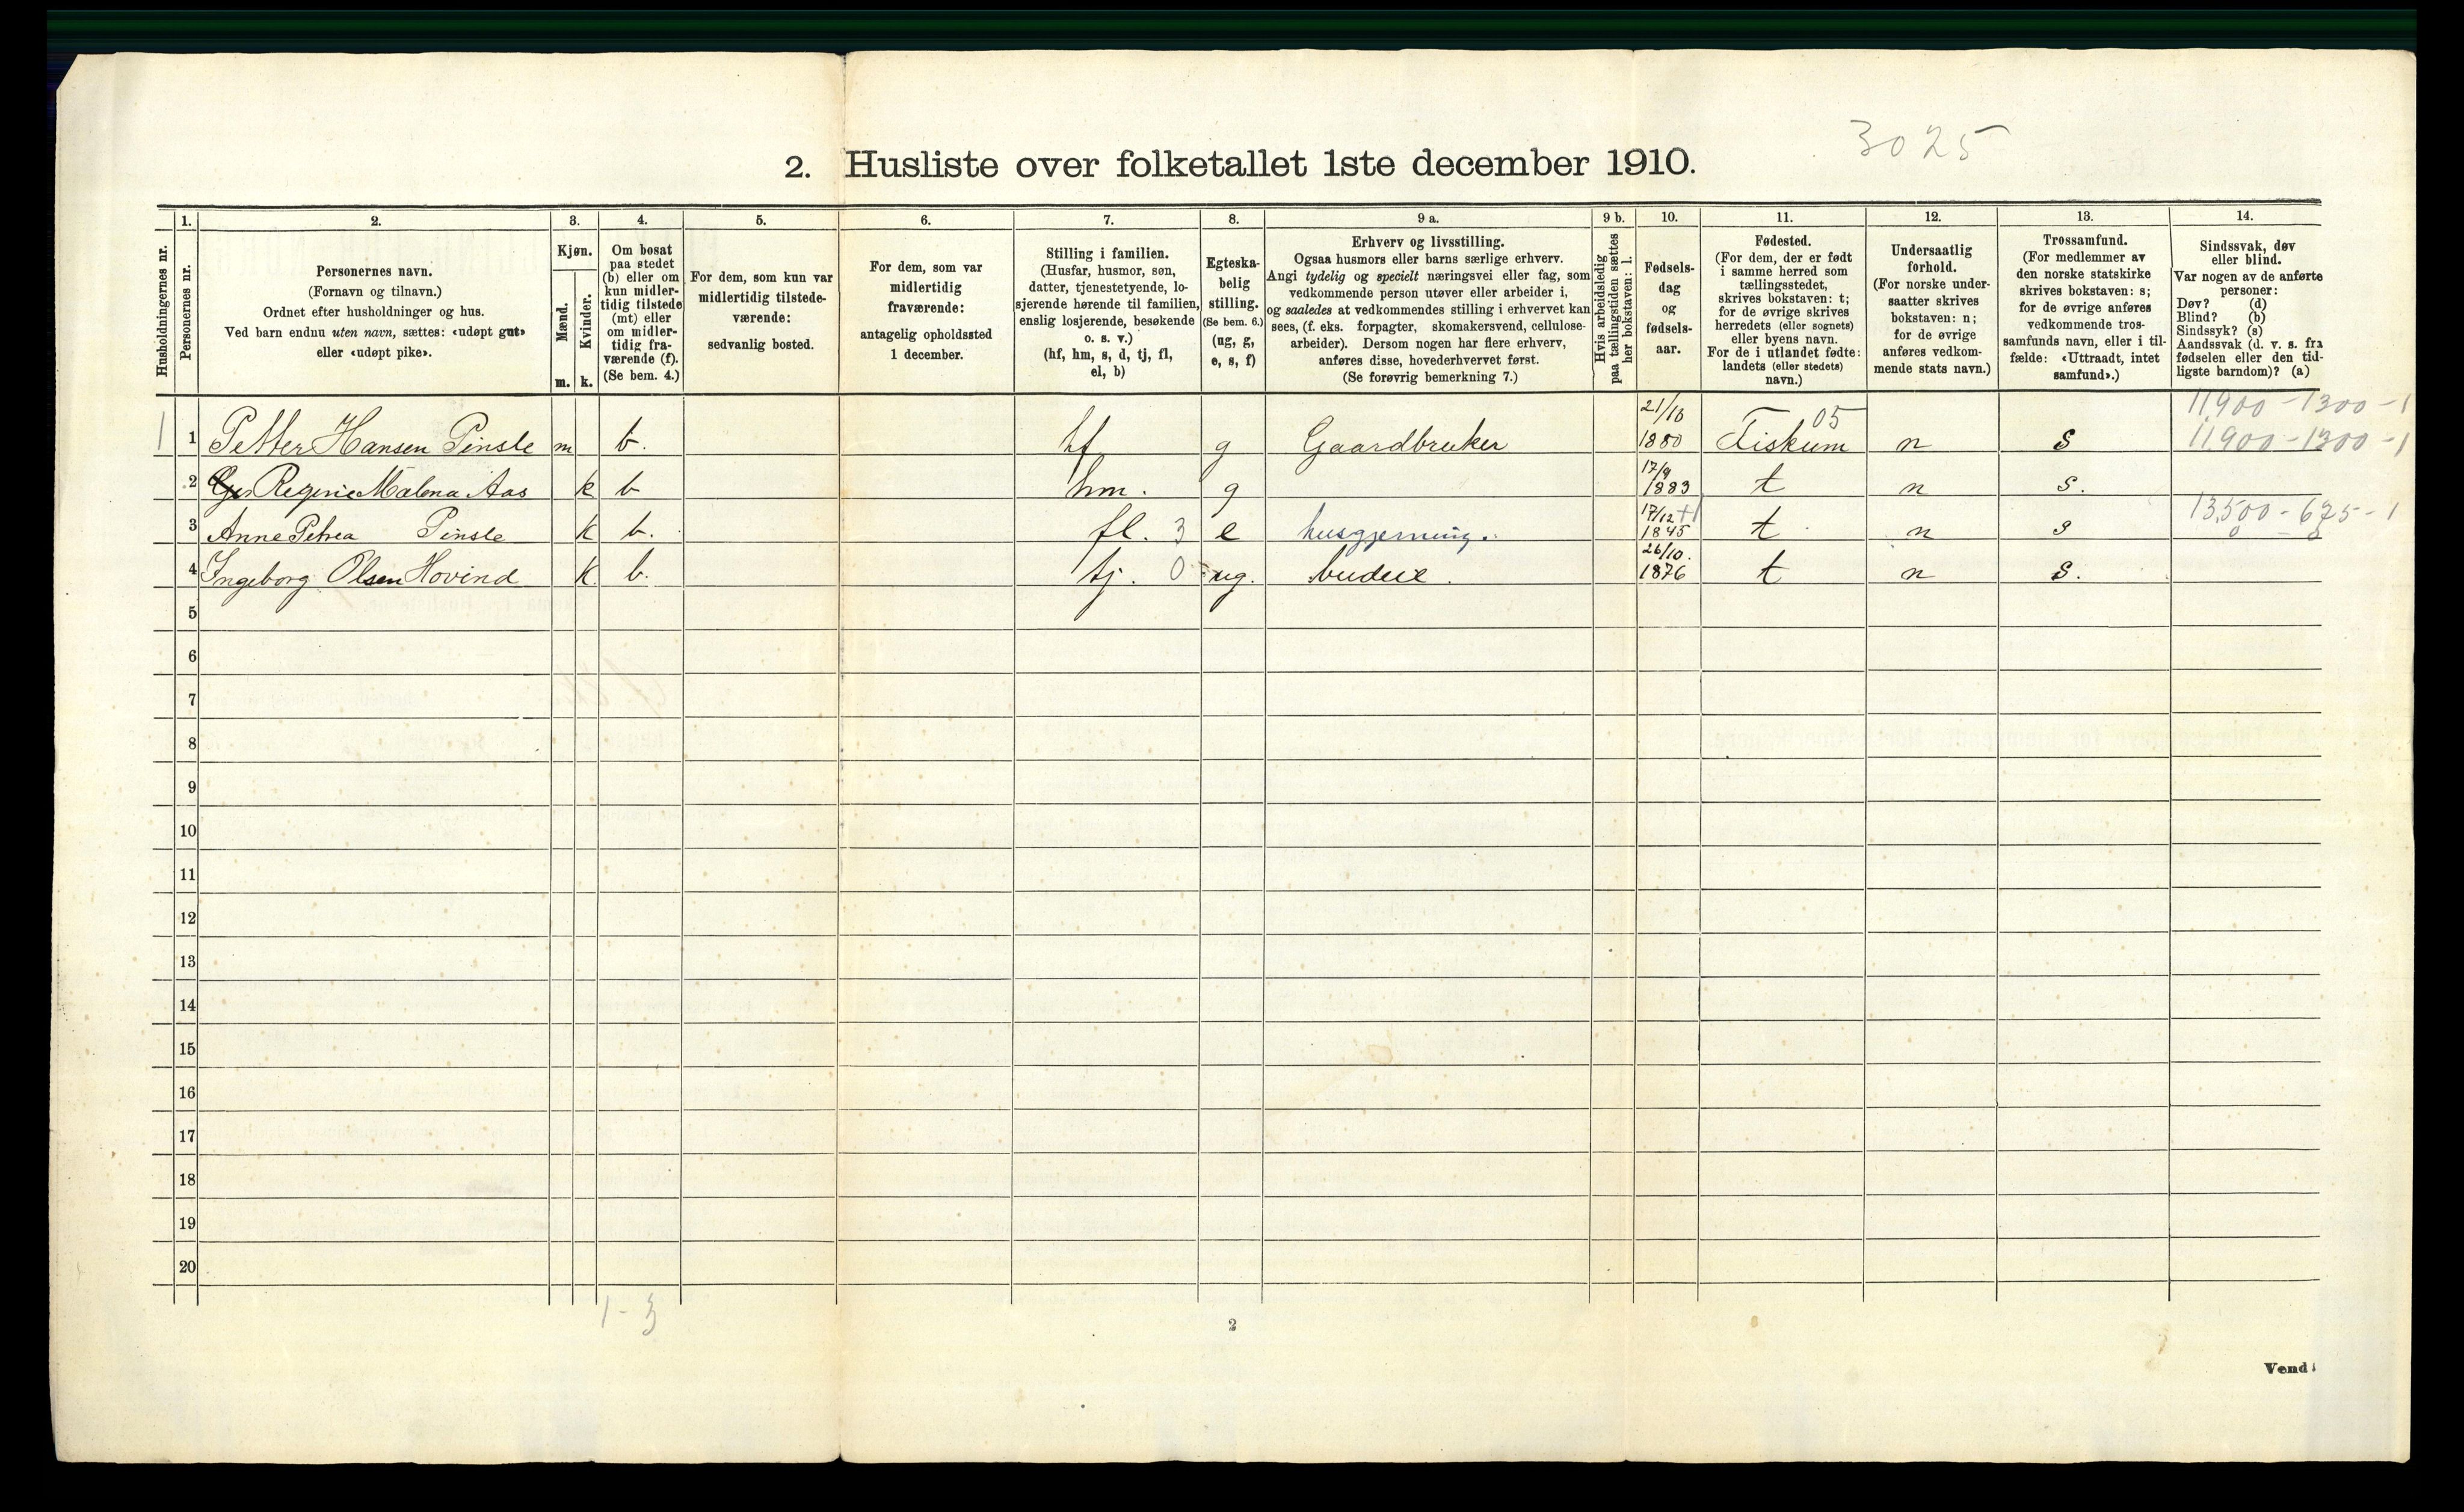 3025
2. Husliste over folketallet 1ste december 1910.
Husholdningernes nr.
1. Personernes nr.
2. Personernes navn.
(Fornavn og tilnavn.)
Ordnet efter husholdninger og hus.
Ved barn endnu uten navn, sættes: «udøpt gut»
eller «udøpt pike».
3. Kjøn.
Mænd. m.
Kvinder. k.
4. Om bosat
paa stedet
(b) eller om
kun midler-
tidig tilstede
(mt) eller
om midler-
tidig fra-
værende (f).
(Se bem. 4.)
5. For dem, som kun var
midlertidig tilstede-
værende:
sedvanlig bosted.
6. For dem, som var
midlertidig
fraværende:
antagelig opholdssted
1 december.
7. Stilling i familien.
(Husfar, husmor, søn,
datter, tjenestetyende, lo-
sjerende hørende til familien,
enslig losjerende, besøkende
o. s. v.)
(hf, hm, s, d, tj, fl,
el, b)
8. Egteska-
belig
stilling.
(Se bem. 6.)
(ug, g,
e, s, f)
9 a. Erhverv og livsstilling.
Ogsaa husmors eller barns særlige erhverv.
Angi tydelig og specielt næringsvei eller fag, som
vedkommende person utøver eller arbeider i,
og saaledes at vedkommendes stilling i erhvervet kan
sees, (f. eks. forpagter, skomakersvend, cellulose-
arbeider). Dersom nogen har flere erhverv,
anføres disse, hovederhvervet først.
(Se forøvrig bemerkning 7.)
9 b. Hvis arbeidsledig
paa tællingstiden sættes
her bokstaven: l.
10. Fødsels-
dag
og
fødsels-
aar.
11. Fødested.
(For dem, der er født
i samme herred som
tællingsstedet,
skrives bokstaven: t;
for de øvrige skrives
herredets (eller sognets)
eller byens navn.
For de i utlandet fødte:
landets (eller stedets)
navn.)
12. Undersaatlig
forhold.
(For norske under-
saatter skrives
bokstaven: n;
for de øvrige
anføres vedkom-
mende stats navn.)
13. Trossamfund.
(For medlemmer av
den norske statskirke
skrives bokstaven: s;
for de øvrige anføres
vedkommende tros-
samfunds navn, eller i til-
fælde: «Uttraadt, intet
samfund».)
14. Sindssvak, døv
eller blind.
Var nogen av de anførte
personer:
Døv? (d)
Blind? (b)
Sindssyk? (s)
Aandssvak (d. v. s. fra
fødselen eller den tid-
ligste barndom)? (a)
21/10 05 11900 - 1300 - 1
1 1 Petter Hansen Pinsle m b. hf g Gaardbruker 1880 Fiskum n s 11900 - 1300 - 1
17/9
2 Regine Malena Aas k b hm. g 1883 t n s.
17/12 13,500 - 675 - 1
3 Anne Petrea Pinsle k b. fl. 3 e husgjerning. 1845 t n s
26/10.
4 Ingeborg Olsen Hovind k. b. tj. 0 ug. budeie. 1876 t n s.
5
6
7
8
9
10
11
12
13
14
15
16
17
18
19
20
1 - 3
2
Vend!